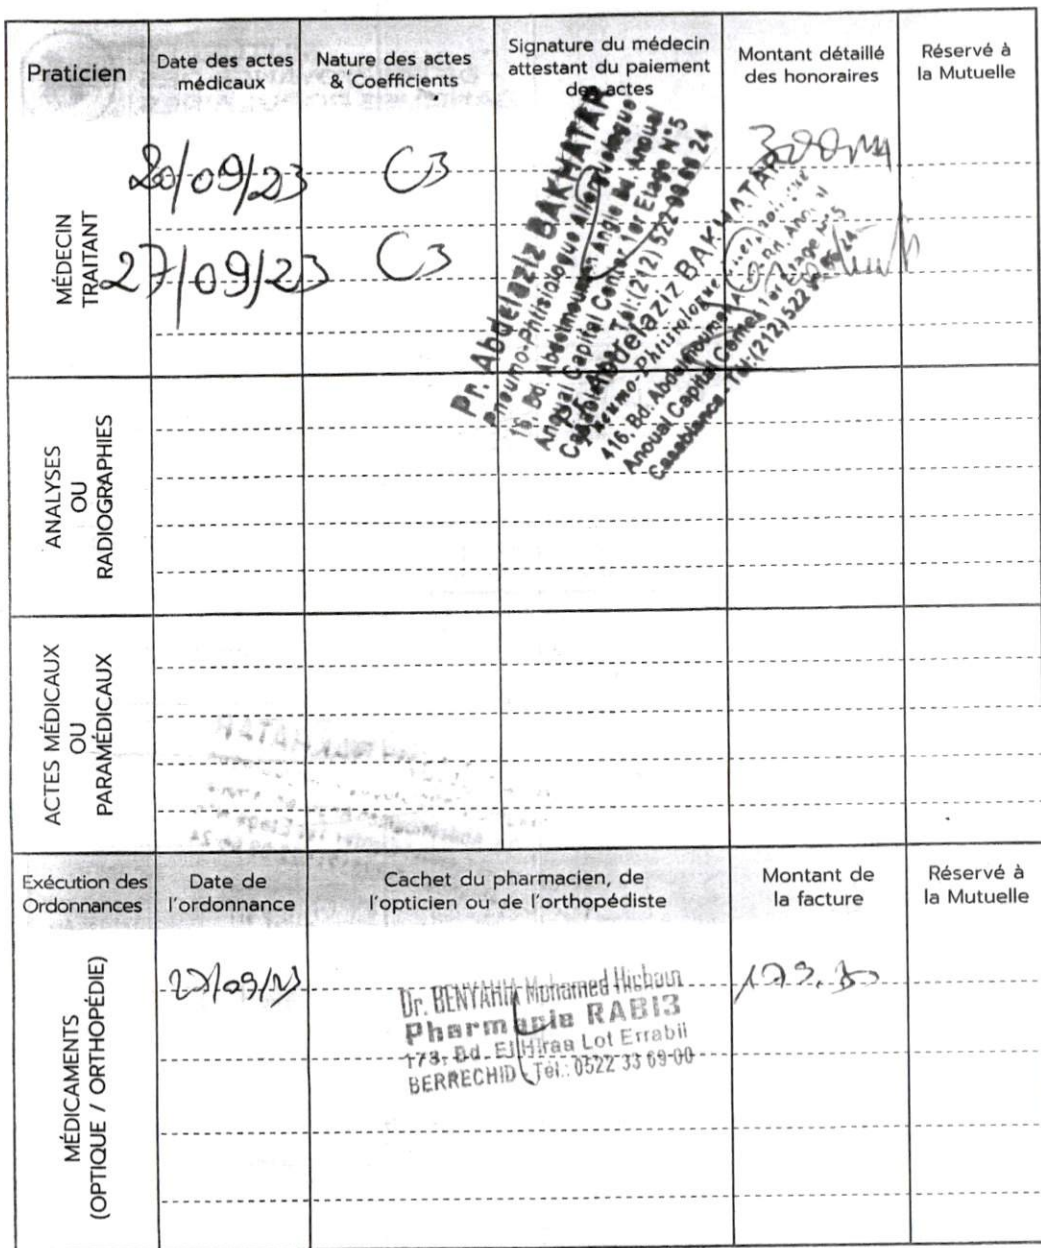 Praticien
Date des actes
médicaux
Nature des actes
& Coefficients
Signature du médecin
attestant du paiement
des actes
Montant détaillé
des honoraires
Réservé à
la Mutuelle
MÉDECIN
TRAITANT
20/09/23
C3
27/09/23
C3
Pr. Abdelaziz BAKHATAR
Pneumo-Phtisiologue Allergologue
Bd. Abdelmoumen Angle Bd. Anoual
Anoual Capital Center 1er Etage N°5
Tel:(212) 522
Abdelaziz BAKHATAR
Pneumo-Phtisiologue
416, Bd. Abdelmoumen
Anoual Capital Center 1er Etage N°5
Casablanca - Tel:(212) 522
ANALYSES
OU
RADIOGRAPHIES
ACTES MÉDICAUX
OU
PARAMÉDICAUX
Exécution des
Ordonnances
Date de
l'ordonnance
Cachet du pharmacien, de
l'opticien ou de l'orthopédiste
Montant de
la facture
Réservé à
la Mutuelle
MÉDICAMENTS
(OPTIQUE / ORTHOPÉDIE)
27/09/23
Dr. BENYAHIA Mohamed Hicham
Pharmacie RABI3
173, Bd. El Hiraa Lot Errabii
BERRECHID Tél.: 0522 33 69-00